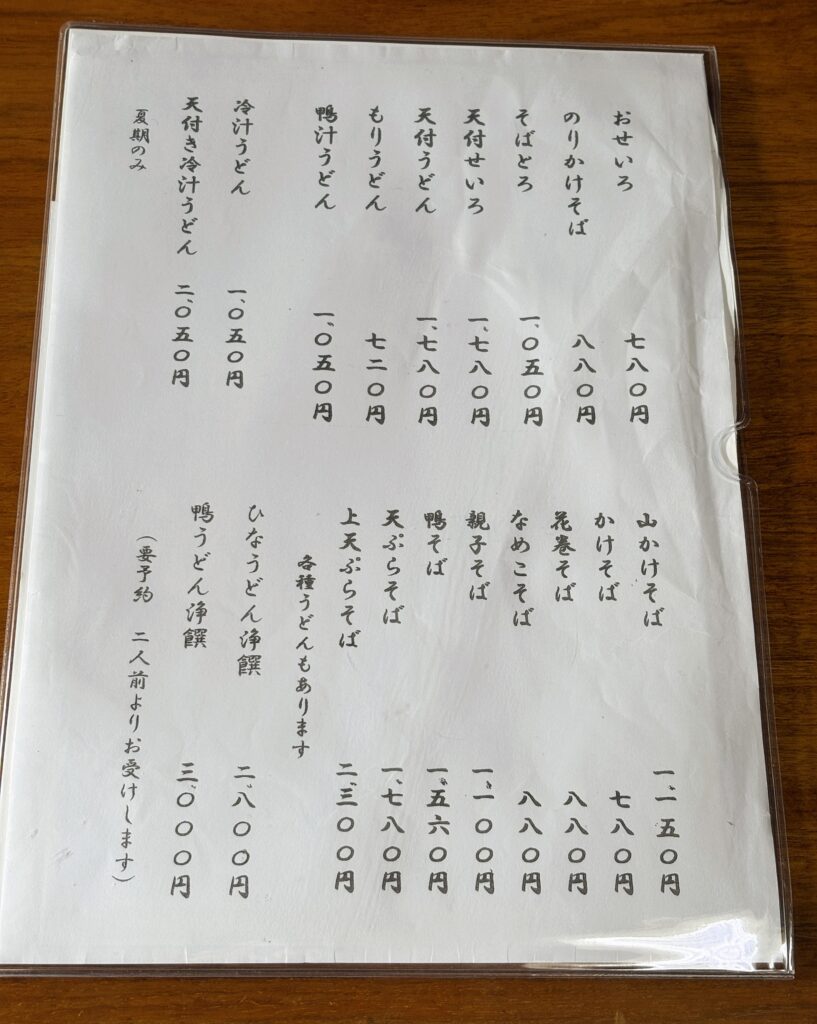 おせいろ　七八〇円
のりかけそば　八八〇円
そばとろ　一、〇五〇円
天付せいろ　一、七八〇円
天付うどん　一、七八〇円
もりうどん　七二〇円
鴨汁うどん　一、〇五〇円
冷汁うどん　一、〇五〇円
天付き冷汁うどん　二、〇五〇円
夏期のみ
山かけそば　一、一五〇円
かけそば　七八〇円
花巻そば　八八〇円
なめこそば　八八〇円
親子そば　一、一〇〇円
鴨そば　一、五六〇円
天ぷらそば　一、七八〇円
上天ぷらそば　二、三〇〇円
各種うどんもあります
ひなうどん浄饌　二、八〇〇円
鴨うどん浄饌　三、〇〇〇円
（要予約　二人前よりお受けします）